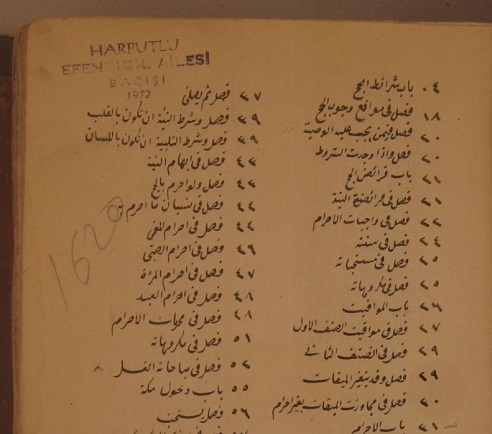 HARPUTLU
EFENDİGİL AİLESİ
BAĞIŞI
1972
1620
باب شرائط الحج ٠٤
فصل فى موانع وجوب الحج ١٨
فصل فيمن يجب عليه الوصية ٢٠
فصل واذا وجدت الشروط ٢٠
باب فرائض الحج ٢١
فصل فى فرائضية النية ٢١
فصل فى واجبات الاحرام ٢٢
فصل فى سننه ٢٤
فصل فى مستحباته ٢٥
فصل فى مكروهاته ٢٥
باب المواقيت ٢٦
فصل فى مواقيت الصنف الاول ٢٧
فصل فى الصنف الثانى ٢٩
فصل وقد يتغير الميقات ٢٩
فصل فى مجاوزت الميقات بغير احرام ٣٠
باب الاحرام ٣١
فصل ثم يصلى ٣٧
فصل وشرط النية ان تكون بالقلب ٣٩
فصل وشرط التلبية ان تكون باللسان ٣٩
فصل فى ابهام النية ٤٣
فصل ولو احرم بالحج ٤٣
فصل فى نسيان ما احرم به ٤٢
فصل فى احرام المغمى ٤٤
فصل فى احرام الصبى ٤٦
فصل فى احرام المرأة ٤٧
فصل فى احرام العبد ٤٨
فصل فى محرمات الاحرام ٤٨
فصل فى مكروهاته ٥١
فصل فى مباحاته الغسل ٥٢
باب دخول مكة ٥٥
فصل يستحب ٥٦